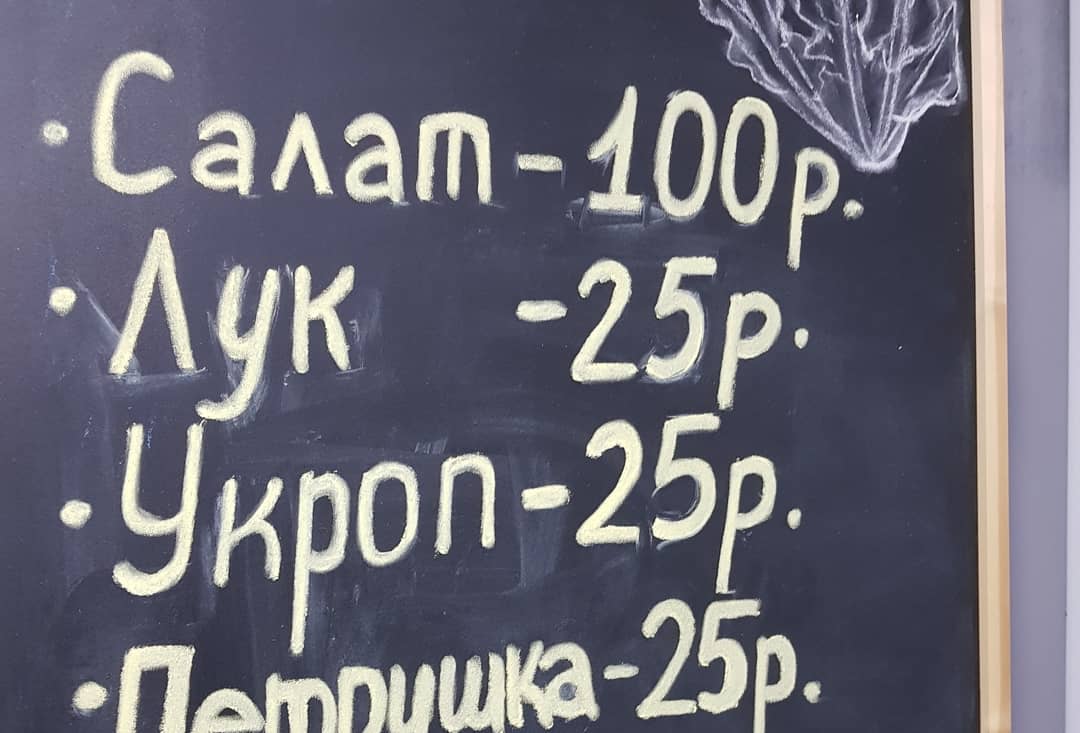 · Салат - 100р.
· Лук - 25р.
· Укроп - 25р.
· Петрушка - 25р.